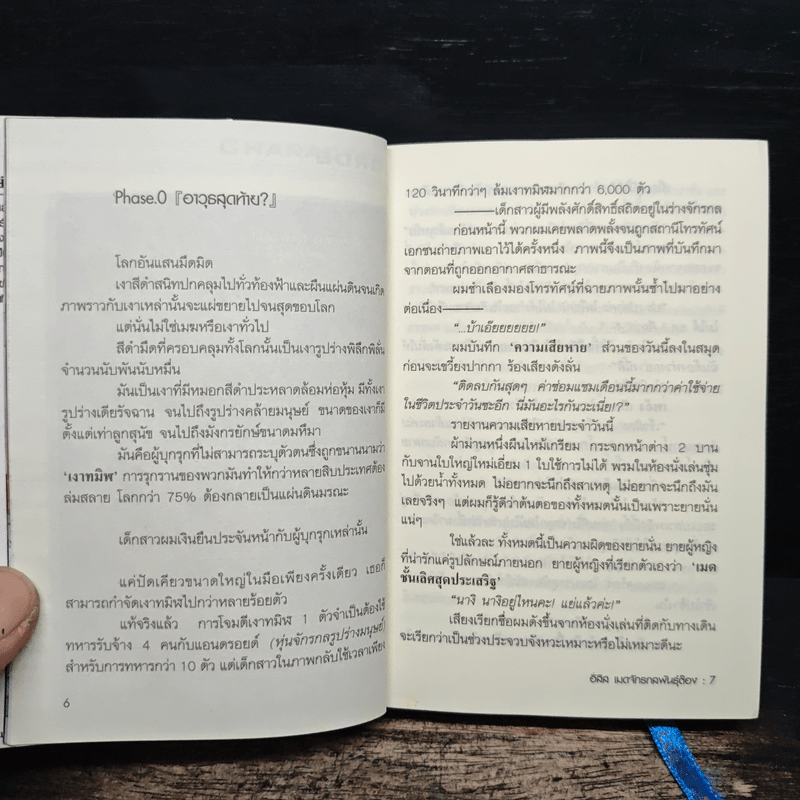 Phase.0 『อาวุธสุดท้าย?』
โลกอันแสนมืดมิด
เงาสีดำสนิทปกคลุมไปทั่วท้องฟ้าและผืนแผ่นดินจนเกิด
ภาพราวกับเงาเหล่านั้นจะแผ่ขยายไปจนสุดขอบโลก
แต่นั่นไม่ใช่เมฆหรือเงาทั่วไป
สีดำมืดที่ครอบคลุมทั้งโลกนั้นเป็นเงารูปร่างพิลึกพิลั่น
จำนวนนับพันนับหมื่น
มันเป็นเงาที่มีหมอกสีดำประหลาดล้อมห่อหุ้ม มีทั้งเงา
รูปร่างเดียรัจฉาน จนไปถึงรูปร่างคล้ายมนุษย์ ขนาดของเงาก็มี
ตั้งแต่เท่าลูกสุนัข จนไปถึงมังกรยักษ์ขนาดมหึมา
มันคือผู้บุกรุกที่ไม่สามารถระบุตัวตนซึ่งถูกขนานนามว่า
‘เงาทมิฬ’ การรุกรานของพวกมันทำให้กว่าหลายสิบประเทศต้อง
ล่มสลาย โลกกว่า 75% ต้องกลายเป็นแผ่นดินมรณะ
เด็กสาวผมเงินยืนประจันหน้ากับผู้บุกรุกเหล่านั้น
แค่ปัดเคียวขนาดใหญ่ในมือเพียงครั้งเดียว เธอก็
สามารถกำจัดเงาทมิฬไปกว่าหลายร้อยตัว
แท้จริงแล้ว การโจมตีเงาทมิฬ 1 ตัวจำเป็นต้องใช้
ทหารรับจ้าง 4 คนกับแอนดรอยด์ (หุ่นจักรกลรูปร่างมนุษย์)
สำหรับการทหารกว่า 10 ตัว แต่เด็กสาวในภาพกลับใช้เวลาเพียง
6
120 วินาทีกว่าๆ ล้มเงาทมิฬมากกว่า 6,000 ตัว
———เด็กสาวผู้มีพลังศักดิ์สิทธิ์สถิตอยู่ในร่างจักรกล
ก่อนหน้านี้ พวกผมเคยพลาดพลั้งจนถูกสถานีโทรทัศน์
เอกชนถ่ายภาพเอาไว้ได้ครั้งหนึ่ง ภาพนี้จึงเป็นภาพที่บันทึกมา
จากตอนที่ถูกออกอากาศสาธารณะ
ผมชำเลืองมองโทรทัศน์ที่ฉายภาพนั้นซ้ำไปมาอย่าง
ต่อเนื่อง———
“...บ้าเอ๊ยยยยยย!”
ผมบันทึก ‘ความเสียหาย’ ส่วนของวันนี้ลงในสมุด
ก่อนจะเขวี้ยงปากกา ร้องเสียงดังลั่น
“ติดลบกันสุดๆ ค่าซ่อมแซมเดือนนี้มากกว่าค่าใช้จ่าย
ในชีวิตประจำวันซะอีก นี่มันอะไรกันวะเนี่ย!?”
รายงานความเสียหายประจำวันนี้
ผ้าม่านหนึ่งผืนไหม้เกรียม กระจกหน้าต่าง 2 บาน
กับจานใบใหญ่ใหม่เอี่ยม 1 ใบใช้การไม่ได้ พรมในห้องนั่งเล่นชุ่ม
ไปด้วยน้ำทั้งหมด ไม่อยากจะนึกถึงสาเหตุ ไม่อยากจะนึกถึงมัน
เลยจริงๆ แต่ผมก็รู้ดีว่าต้นตอของทั้งหมดนั้นเป็นเพราะยายนั่น
แน่ๆ
ใช่แล้วละ ทั้งหมดนี้เป็นความผิดของยายนั่น ยายผู้หญิง
ที่น่ารักแค่รูปลักษณ์ภายนอก ยายผู้หญิงที่เรียกตัวเองว่า ‘เมด
ชั้นเลิศสุดประเสริฐ’
“นางิ นางิอยู่ไหนคะ! แย่แล้วค่ะ!”
เสียงเรียกชื่อผมดังขึ้นจากห้องนั่งเล่นที่ติดกับทางเดิน
จะเรียกว่าเป็นช่วงประจวบจังหวะเหมาะหรือไม่เหมาะดีนะ
อิสึสึ เมดจักรกลพันธุ์ต๊อง : 7